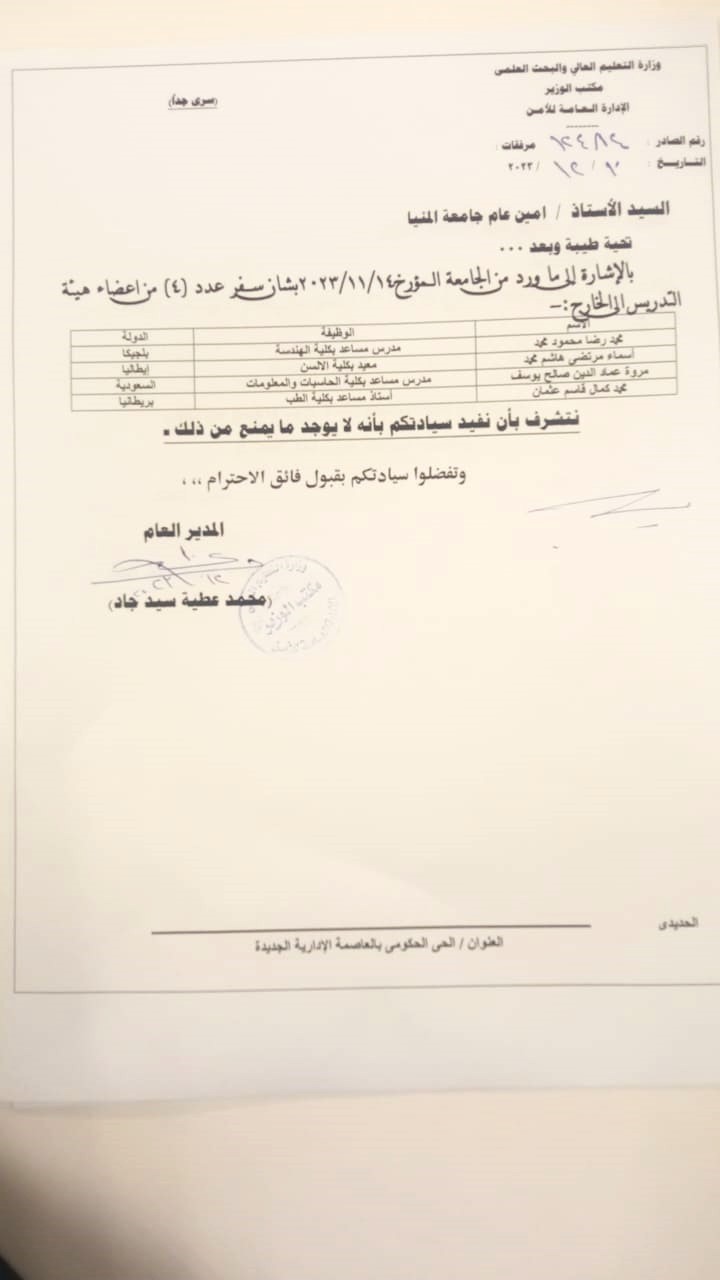 وزارة التعليم العالي والبحث العلمى
مكتب الوزير
الإدارة العامة للأمن
(سرى جداً)
رقم الصادر : ١٢٤٨٤ مرفقات :
التاريخ : ١٠ / ١٢ / ٢٠٢٣
السيد الأستاذ / امين عام جامعة المنيا
تحية طيبة وبعد ...
بالإشارة إلى ما ورد من الجامعة المؤرخ ٢٠٢٣/١١/١٤ بشان سفر عدد (٤) من اعضاء هيئة
التدريس الى الخارج :-
الاسم الوظيفة الدولة
محمد رضا محمود محمد مدرس مساعد بكلية الهندسة بلجيكا
أسماء مرتضي هاشم محمد معيد بكلية الالسن إيطاليا
مروة عماد الدين صالح يوسف مدرس مساعد بكلية الحاسبات والمعلومات السعودية
محمد كمال قاسم عثمان أستاذ مساعد بكلية الطب بريطانيا
نتشرف بأن نفيد سيادتكم بأنه لا يوجد ما يمنع من ذلك .
وتفضلوا سيادتكم بقبول فائق الاحترام ،، ،
المدير العام
(محمد عطية سيد جاد)
مكتب الوزير
الحديدى
العنوان / الحى الحكومى بالعاصمة الإدارية الجديدة